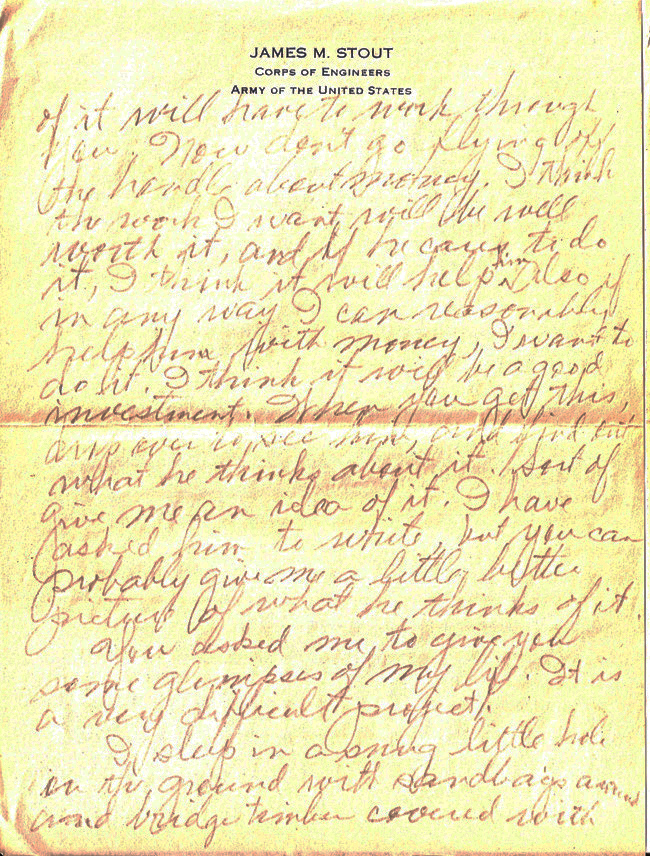 JAMES M. STOUT
CORPS OF ENGINEERS
ARMY OF THE UNITED STATES
of it will have to work through
you. Now don't go flying off
the handle about money. I think
the work I want will be well
worth it, and if he cares to do
it, I think it will help him. Also if
in any way I can reasonably
help him with money, I want to
do it. I think it will be a good
investment. When you get this,
drop over to see him, and find out
what he thinks about it. Sort of
give me an idea of it. I have
asked him to write, but you can
probably give me a little better
picture of what he thinks of it.
You asked me to give you
some glimpses of my life. It is
a very difficult project.
I sleep in a snug little hole
in the ground with sandbags around
and bridge timber covered with